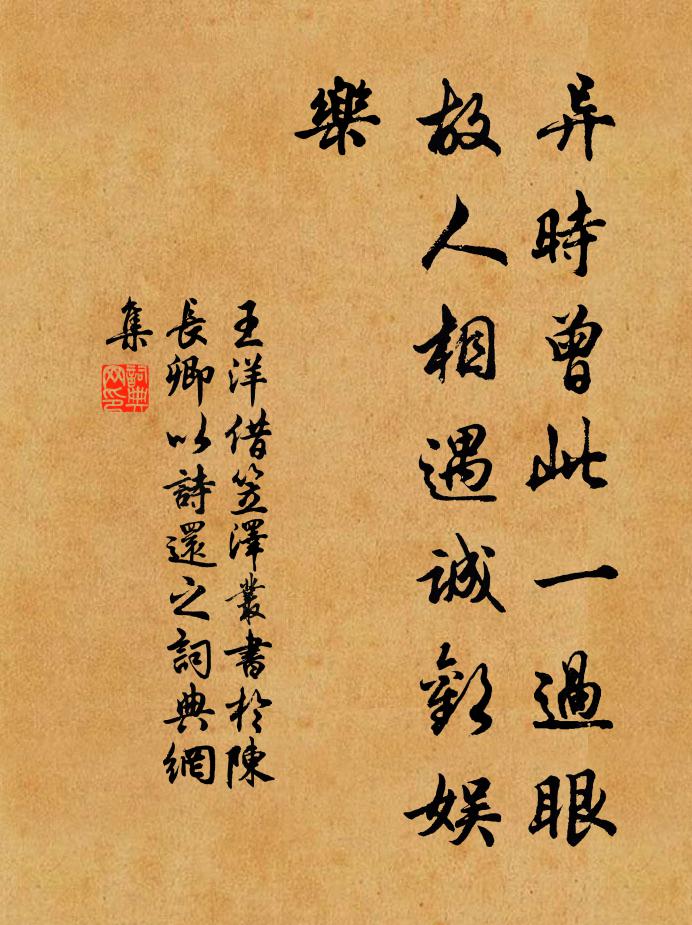 异時曾此一過眼
故人相遇誠歡娛
樂
王洋借笠澤叢書於陳
長卿以詩還之詞典網
集
詞典
网印